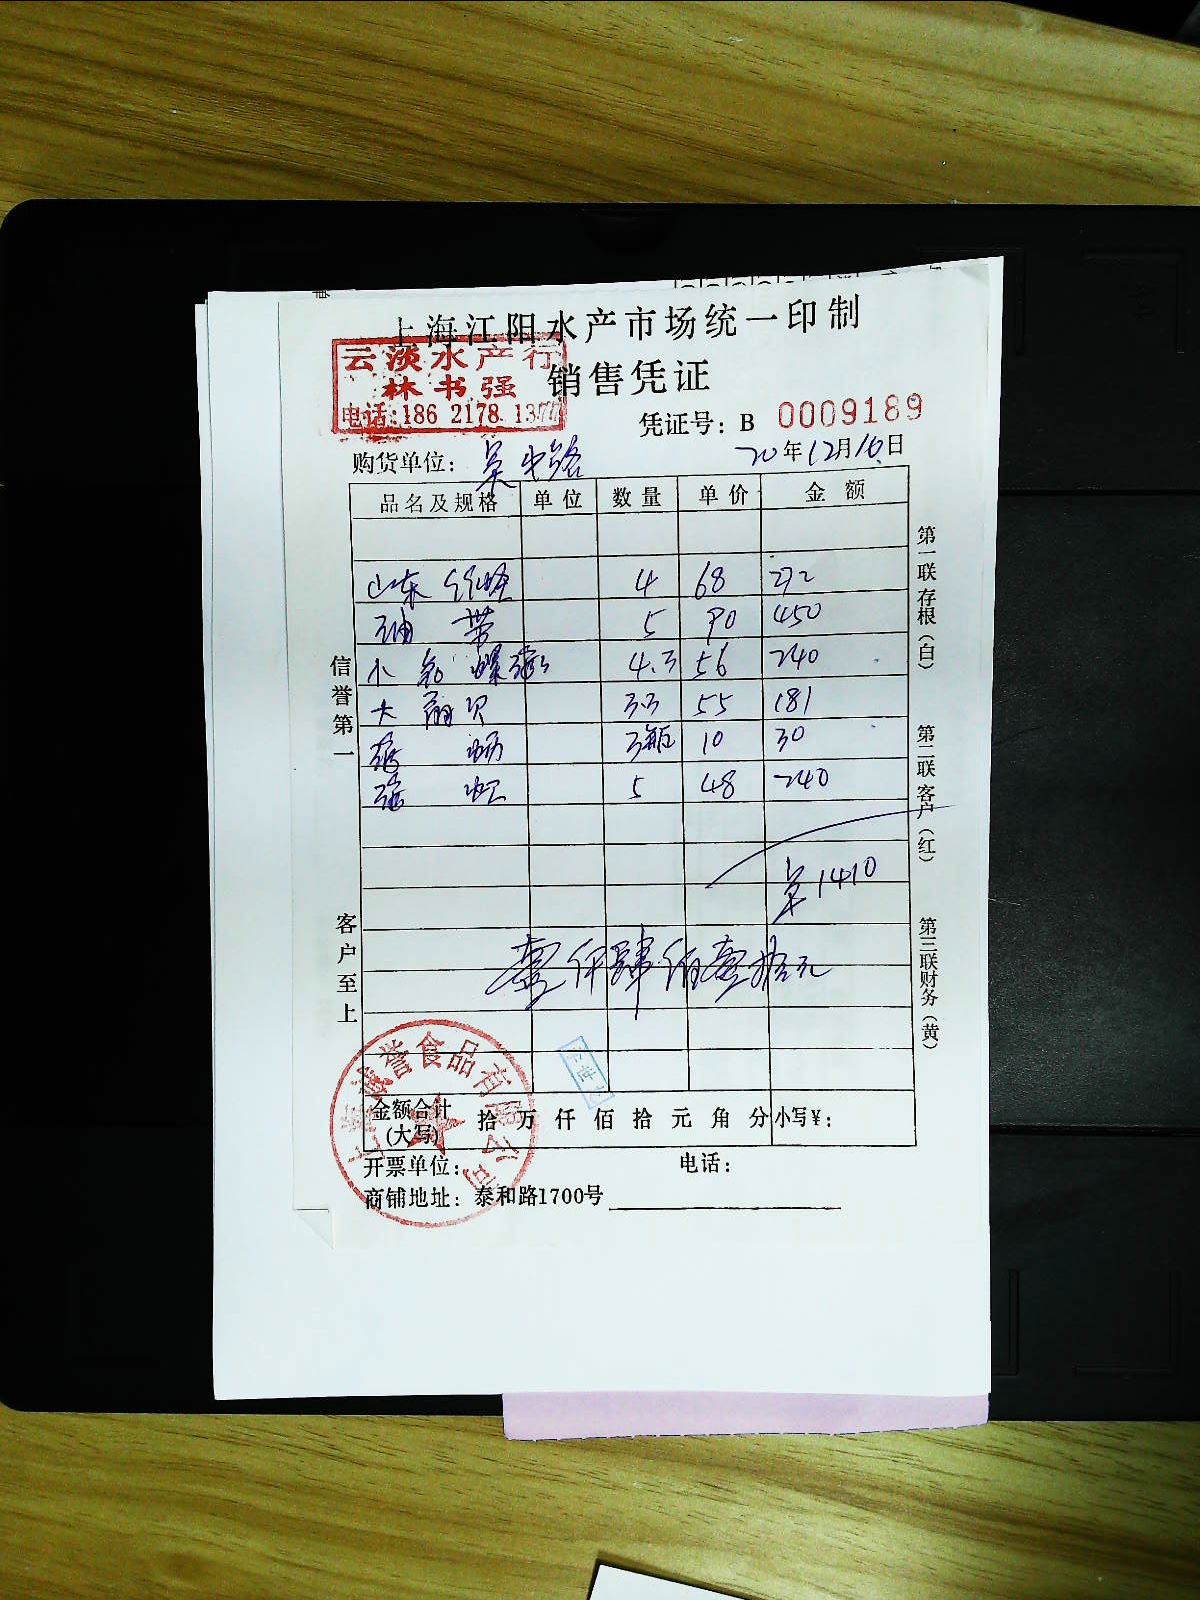 上海江阳水产市场统一印制
云淡水产行
林书强
电话:186 2178 1377
销售凭证
凭证号: B 0009189
购货单位: 吴中路 20年12月16日
品名及规格 单位 数量 单价 金额
山东 4 68 272
油带 5 90 450
小 螺 4.3 56 240
大 贝 3.3 55 181
3瓶 10 30
5 48 240
单1410
壹仟肆佰壹拾元
金额合计(大写) 拾 万 仟 佰 拾 元 角 分 小写¥:
开票单位: 电话:
商铺地址: 泰和路1700号
信誉第一
客户至上
第一联存根(白)
第二联客户(红)
第三联财务(黄)
上海诚誉食品有限公司